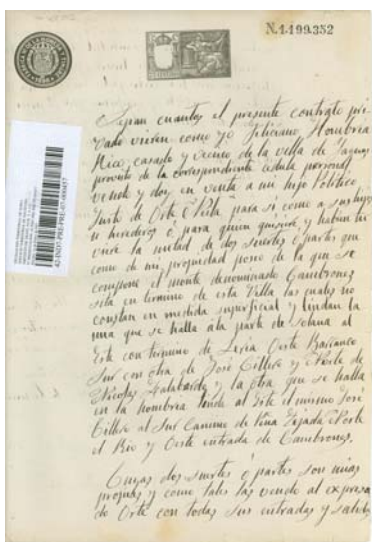 N.1.199.352
Sepan cuantos el presente contrato pri-
vado vieren como yo Feliciano Hombria
Mico, casado y vecino de la villa de Yaguas
provisto de la correspondiente cédula personal
vendo y doy en venta a mi hijo Politico
de Orte para si como a sus hijos
u herederos ó para quien quisiere, y haber hu
viere la mitad de dos suertes ó partes que
como de mi propiedad poseo de la que se
compone el monte denominado Cambrones
sita en termino de esta Villa las cuales no
constan en medida superficial y lindan la
una que se halla á la parte de solana al
Este con termino de Leria Oeste Barranco
Sur con otra de José Norte de
Nicolas y la otra que se halla
en la hombria linda al Este el mismo José
al Sur Camino de Norte
el Rio y Oeste entrada de Cambrones.
Cuyas dos suertes ó partes son mias
propias y como tales las vendo al expresa-
do Orte con todas sus entradas y salidas,